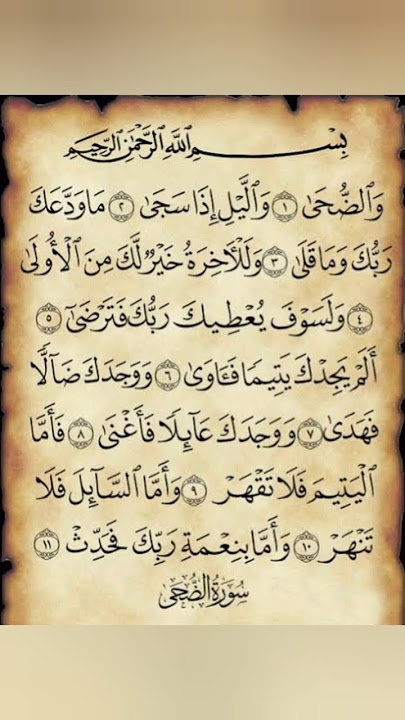 بِسْمِ اللَّهِ الرَّحْمَٰنِ الرَّحِيمِ
وَالضُّحَىٰ ١ وَاللَّيْلِ إِذَا سَجَىٰ ٢ مَا وَدَّعَكَ
رَبُّكَ وَمَا قَلَىٰ ٣ وَلَلْآخِرَةُ خَيْرٌ لَّكَ مِنَ الْأُولَىٰ
٤ وَلَسَوْفَ يُعْطِيكَ رَبُّكَ فَتَرْضَىٰ ٥
أَلَمْ يَجِدْكَ يَتِيمًا فَـَٔاوَىٰ ٦ وَوَجَدَكَ ضَآلًّا
فَهَدَىٰ ٧ وَوَجَدَكَ عَآئِلًا فَأَغْنَىٰ ٨ فَأَمَّا
الْيَتِيمَ فَلَا تَقْهَرْ ٩ وَأَمَّا السَّآئِلَ فَلَا
تَنْهَرْ ١٠ وَأَمَّا بِنِعْمَةِ رَبِّكَ فَحَدِّثْ ١١
سُورَةُ الضُّحَىٰ